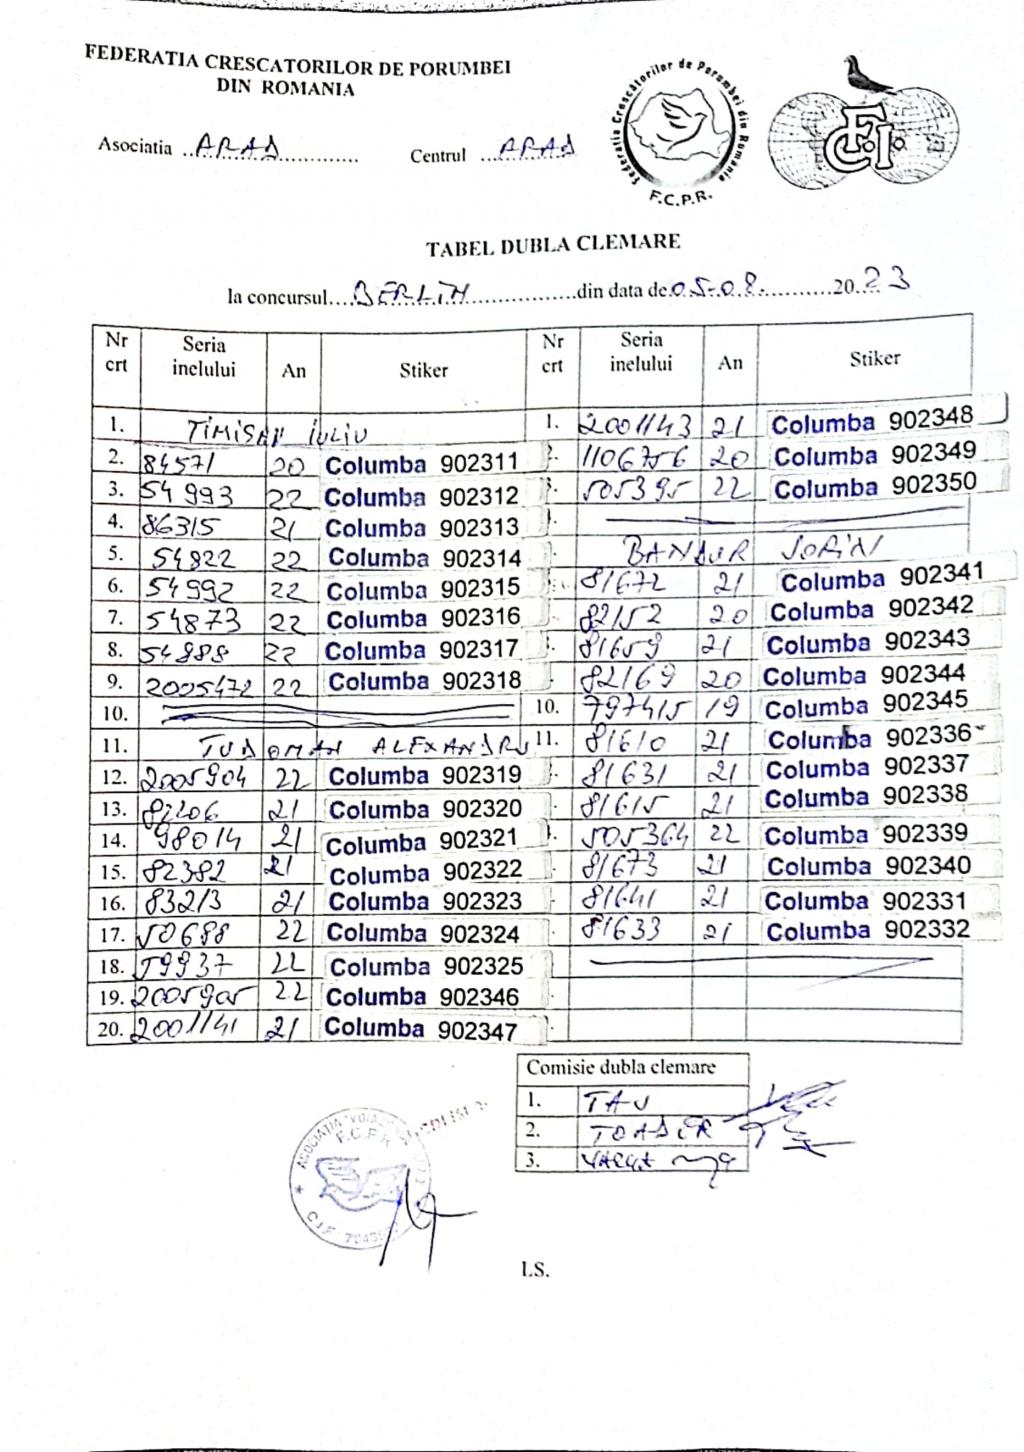 FEDERATIA CRESCATORILOR DE PORUMBEI
DIN ROMANIA
Asociatia ARAD Centrul ARAD
Federatia Crescătorilor de Porumbei din Romania
F.C.P.R.
FCI
TABEL DUBLA CLEMARE
la concursul BERLIN din data de 05-08. 2023
Nr crt Seria inelului An Stiker Nr crt Seria inelului An Stiker
1. TIMISAN IULIU 1. 2001143 21 Columba 902348
2. 84571 20 Columba 902311 1106756 20 Columba 902349
3. 54993 22 Columba 902312 505395 22 Columba 902350
4. 86315 21 Columba 902313
5. 54822 22 Columba 902314 BANDUR SORIN
6. 54992 22 Columba 902315 81672 21 Columba 902341
7. 54873 22 Columba 902316 82152 20 Columba 902342
8. 54888 22 Columba 902317 81659 21 Columba 902343
9. 2005472 22 Columba 902318 82169 20 Columba 902344
10. 10. 797415 19 Columba 902345
11. TUDOMAN ALEXANDRU 11. 81610 21 Columba 902336
12. 2005904 22 Columba 902319 81631 21 Columba 902337
13. 82206 21 Columba 902320 81615 21 Columba 902338
14. 98014 21 Columba 902321 505364 22 Columba 902339
15. 82382 21 Columba 902322 81673 21 Columba 902340
16. 83213 21 Columba 902323 81641 21 Columba 902331
17. 50688 22 Columba 902324 81633 21 Columba 902332
18. 59937 22 Columba 902325
19. 2005905 22 Columba 902346
20. 2001141 21 Columba 902347
Comisie dubla clemare
1. TAU
2. TOADER
3.
ASOCIATIA
F.C.P.R.
C.I.F.
LS.